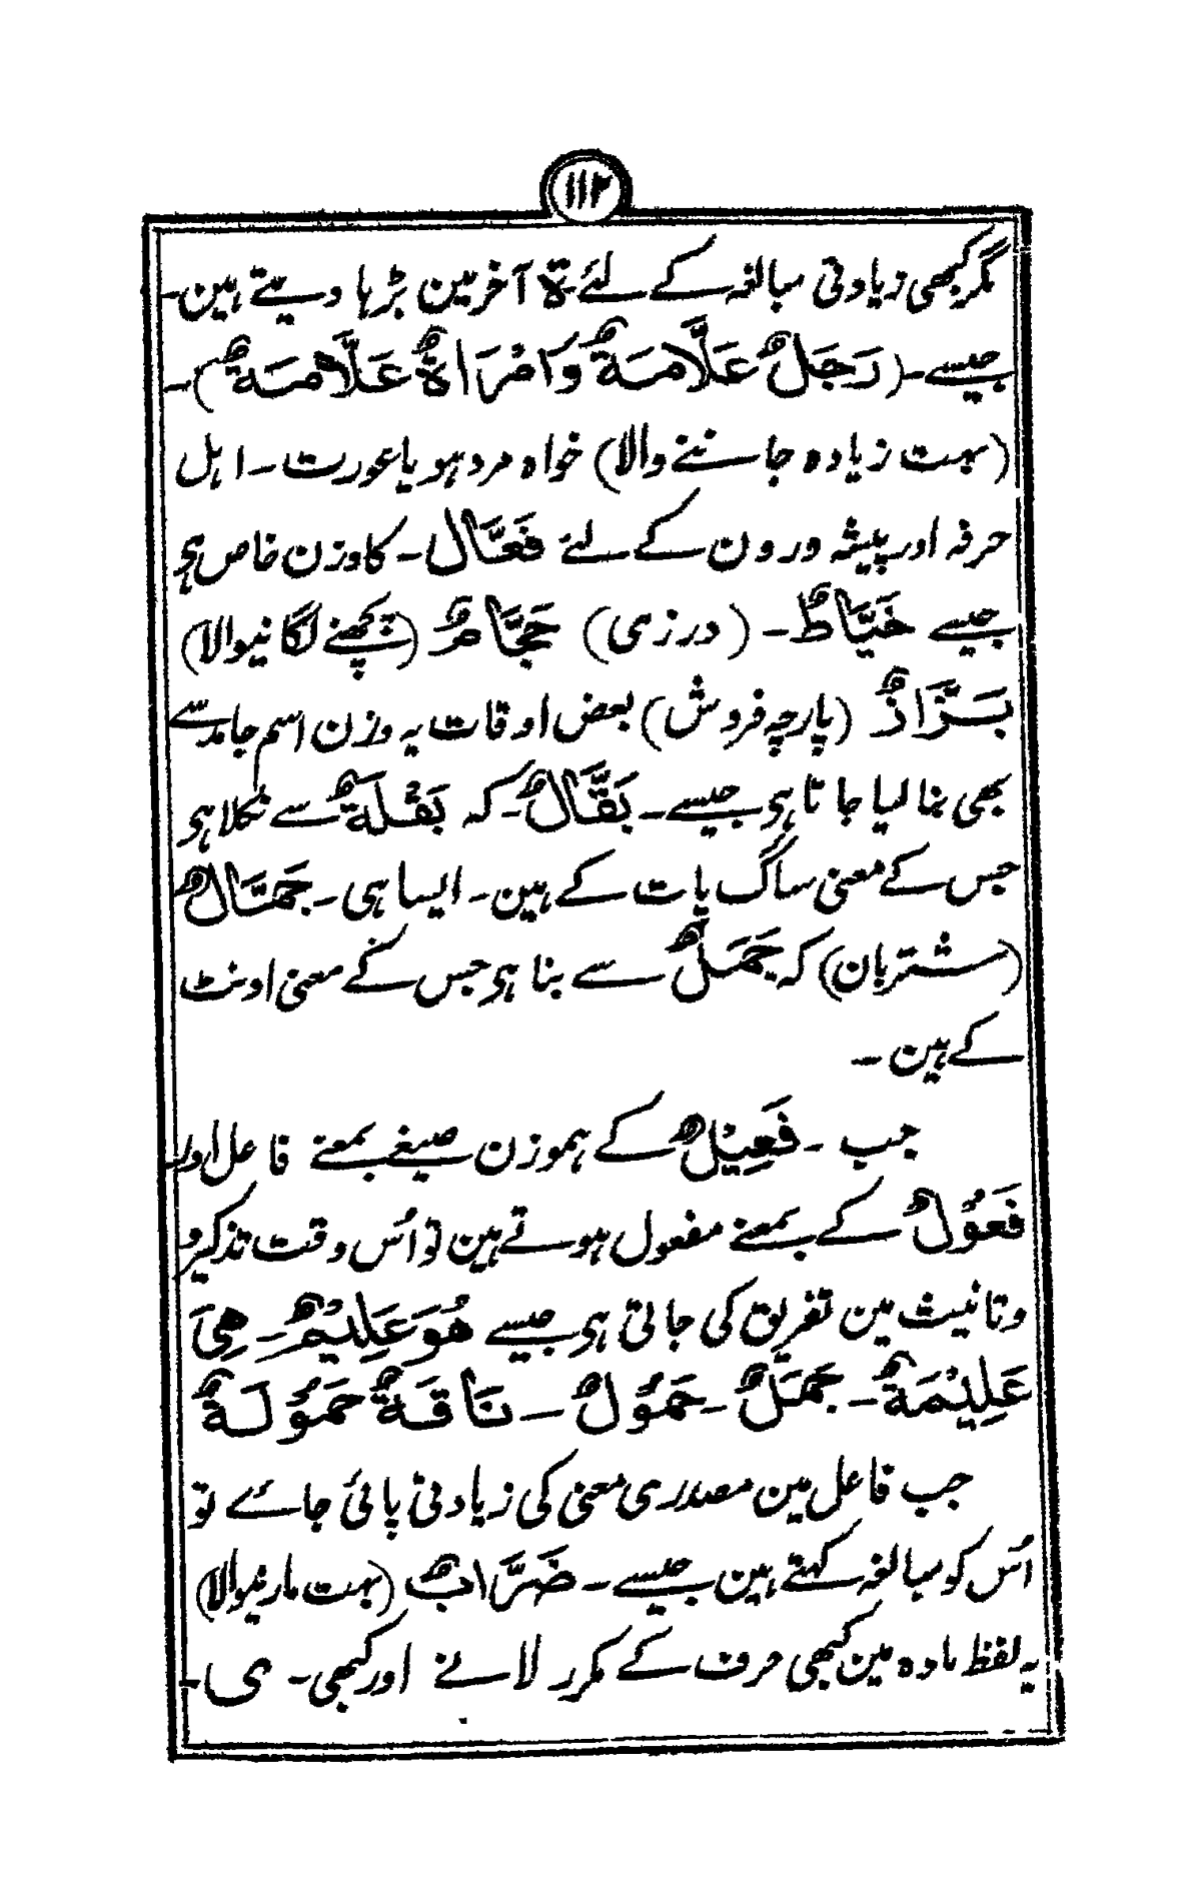 ۱۱۲
مگر کبھی زیادتی مبالغہ کے لئے ۃ آخر مین بڑہا دیتے ہین۔
جیسے۔ (رَجَلٌ عَلَّامَۃٌ وَامْرَاۃٌ عَلَّامَۃٌ)۔
(بہت زیادہ جاننے والا) خواہ مرد ہو یا عورت۔ اہل
حرفہ اور پیشہ ورون کے لئے فَعَّال۔ کا وزن خاص ہی
جیسے خَیَّاطٌ۔ (درزی) حَجَّامٌ (پچھنے لگا نیوالا)
بَزَّازٌ (پارچہ فروش) بعض اوقات یہ وزن اسم جامد سے
بھی بنا لیا جاتا ہی جیسے۔ بَقَّالٌ۔ کہ بَقْلَۃٌ سے نکلا ہی
جس کے معنی ساگ پات کے ہین۔ ایسا ہی۔ جَمَّالٌ
(شتربان) کہ جَمَلٌ سے بنا ہی جس کے معنی اونٹ
کے ہین۔
جب۔ فَعِیْلٌ کے ہموزن صیغے بمعنے فاعل اور
فَعُوْلٌ کے بمعنے مفعول ہوتے ہین تو اُس وقت تذکیر و
و تانیث مین تفریق کی جاتی ہی جیسے ھُوَ عَلِیْمٌ۔ ھِیَ
عَلِیْمَۃٌ۔ جَمَلٌ۔ حَمُوْلٌ۔ نَاقَۃٌ حَمُوْلَۃٌ
جب فاعل مین مصدری معنی کی زیادتی پائی جائے تو
اُس کو مبالغہ کہتے ہین جیسے۔ ضَرَّابٌ (بہت مارنیوالا)
یہ لفظ مادہ مین کبھی حرف کے مکرر لانے اور کبھی۔ ی۔